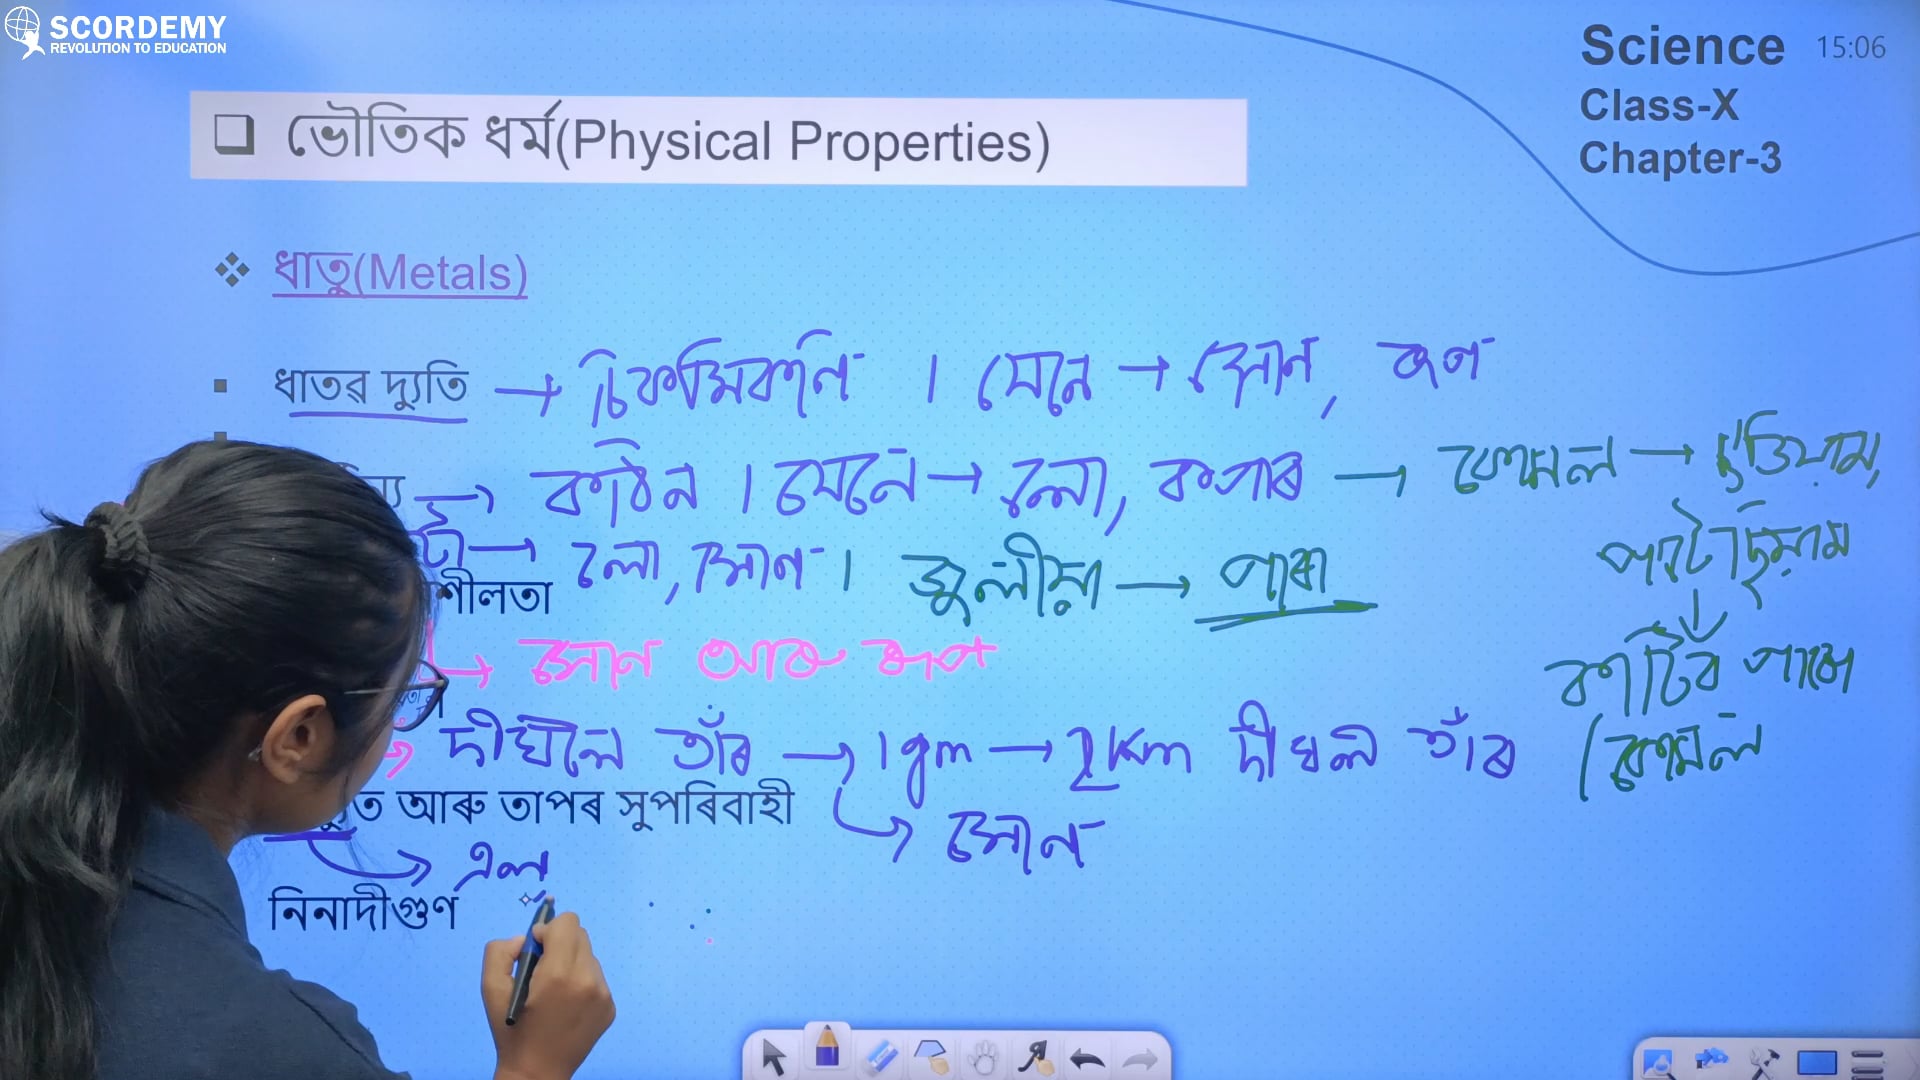 SCORDEMY
REVOLUTION TO EDUCATION
Science 15:06
Class-X
Chapter-3
ভৌতিক ধৰ্ম(Physical Properties)
ধাতু(Metals)
ধাতৱ দ্যুতি → চিকমিকনি । যেনে → সোণ, ৰূপ
→ কঠিন । যেনে → লো, কপাৰ → কোমল →
পটাছিয়াম
→ লো, সোণ । জুলীয়া → পাৰা
শীলতা
→ সোণ আৰু ৰূপ
কাটিব পাৰো
→ দীঘলৈ তাঁৰ → 1gm → 2km দীঘল তাঁৰ
কোমল
ত আৰু তাপৰ সুপৰিবাহী
→ সোণ
→ এলু
নিনাদীগুণ